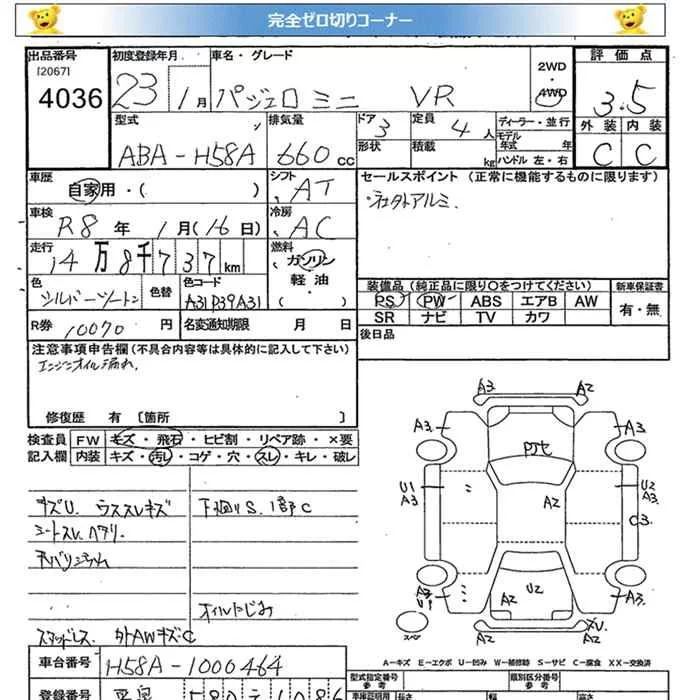 完全ゼロ切りコーナー
出品番号 初度登録年月 車名・グレード 2WD・4WD 評価点
[2067]
4036 23 1月 パジェロミニ VR 3.5
型式 排気量 ドア 定員 ディーラー・並行 外装 内装
ABA-H58A 660cc 3 4人 モデル年式 年 C C
形状 積載 kg ハンドル 左・右
車歴 シフト セールスポイント (正常に機能するものに限ります)
自家用・( ) AT 社外アルミ.
車検 冷房
R8年 1月(16日) AC
走行 燃料
14万8千737km ガソリン
軽油
・( )
色 色替 色コード 装備品(純正品に限り○をつけてください) 新車保証書
シルバーツートン A31P39A31 PS PW ABS エアB AW 有・無
SR ナビ TV カワ
R券 10070円 名変通知期限 月 日 後日品
注意事項申告欄(不具合内容等は具体的に記入して下さい)
エンジンオイル漏れ.
修復歴 有 [箇所 ]
検査員 FW キズ・飛石・ヒビ割・リペア跡・×要
記入欄 内装 キズ・汚レ・コゲ・穴・スレ・キレ・破レ
A3 A2
A3. A3.
A2
U1 A3 U2 A3.
C3.
A2 U2 A2
スペア
A2 A2
キズU. ウススレキズ 下廻りS.1部C
シートスレ ヘタリ.
オイルにじみ
スタッドレス 外AWキズ・C
車台番号 H58A-1000464 型式指定番号 参考 類別区分番号 参考
A-キズ E-エクボ U-凹み W-補修跡 S-サビ C-腐食 XX-交換済
登録番号 車検証明用 参考 長さ 幅 高さ